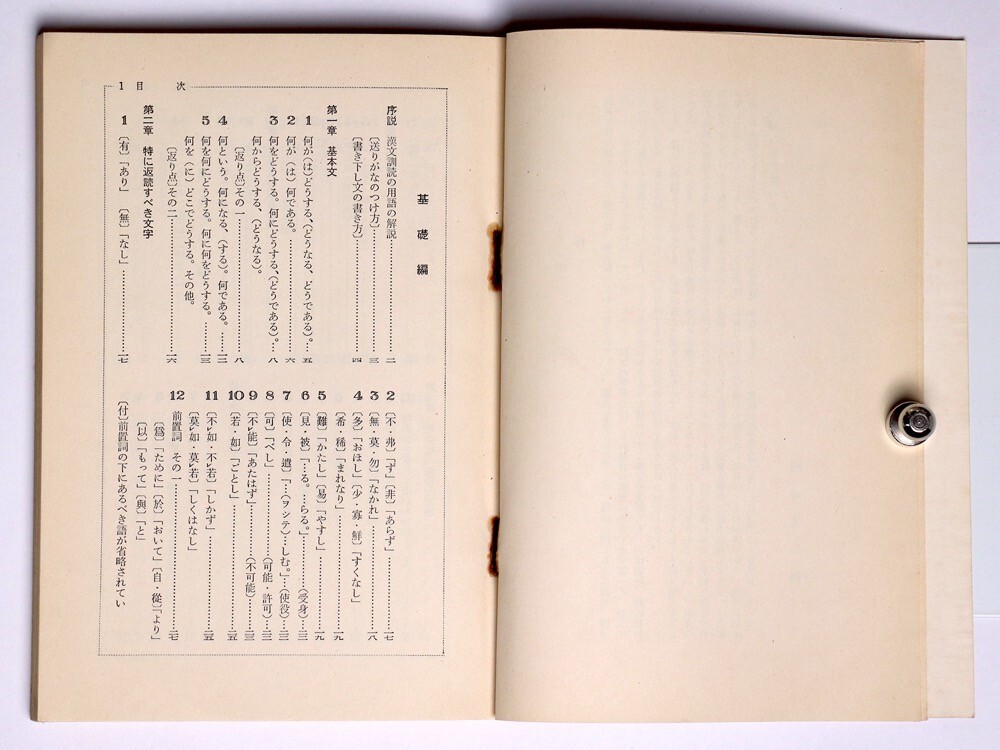 1 目次
基礎編
序説 漢文訓読の用語の解説……二
〔送りがなのつけ方〕……三
〔書き下し文の書き方〕……四
第一章 基本文
1 何が(は)どうする、(どうなる、どうである)。…五
2 何が(は)何である。……六
3 何をどうする。何にどうする、(どうである)。…八
何からどうする、(どうなる)。
〔返り点〕その一……八
4 何という。何になる、(する)。何である。……一二
5 何を何にどうする。何に何をどうする。……一三
何を(に)どこでどうする。その他。
〔返り点〕その二……一六
第二章 特に返読すべき文字
1 〔有〕「あり」〔無〕「なし」……一七
2 〔不・弗〕「ず」〔非〕「あらず」……一七
3 〔無・莫・勿〕「なかれ」……一八
4 〔多〕「おほし」〔少・寡・鮮〕「すくなし」
〔希・稀〕「まれなり」……一九
5 〔難〕「かたし」〔易〕「やすし」……一九
6 〔見・被〕「…る。…らる。」……(受身)…二二
7 〔使・令・遣〕「…(ヲシテ)…しむ。」…(使役)…二三
8 〔可〕「べし」……(可能・許可)…二三
9 〔不㆑能〕「あたはず」……(不可能)…二三
10 〔若・如〕「ごとし」……二五
11 〔不㆑如・不㆑若〕「しかず」……二五
〔莫㆑如・莫㆑若〕「しくはなし」
12 前置詞 その一……二七
〔爲〕「ために」〔於〕「おいて」〔自・從〕「より」
〔以〕「もって」〔與〕「と」
〔付〕前置詞の下にあるべき語が省略されてい